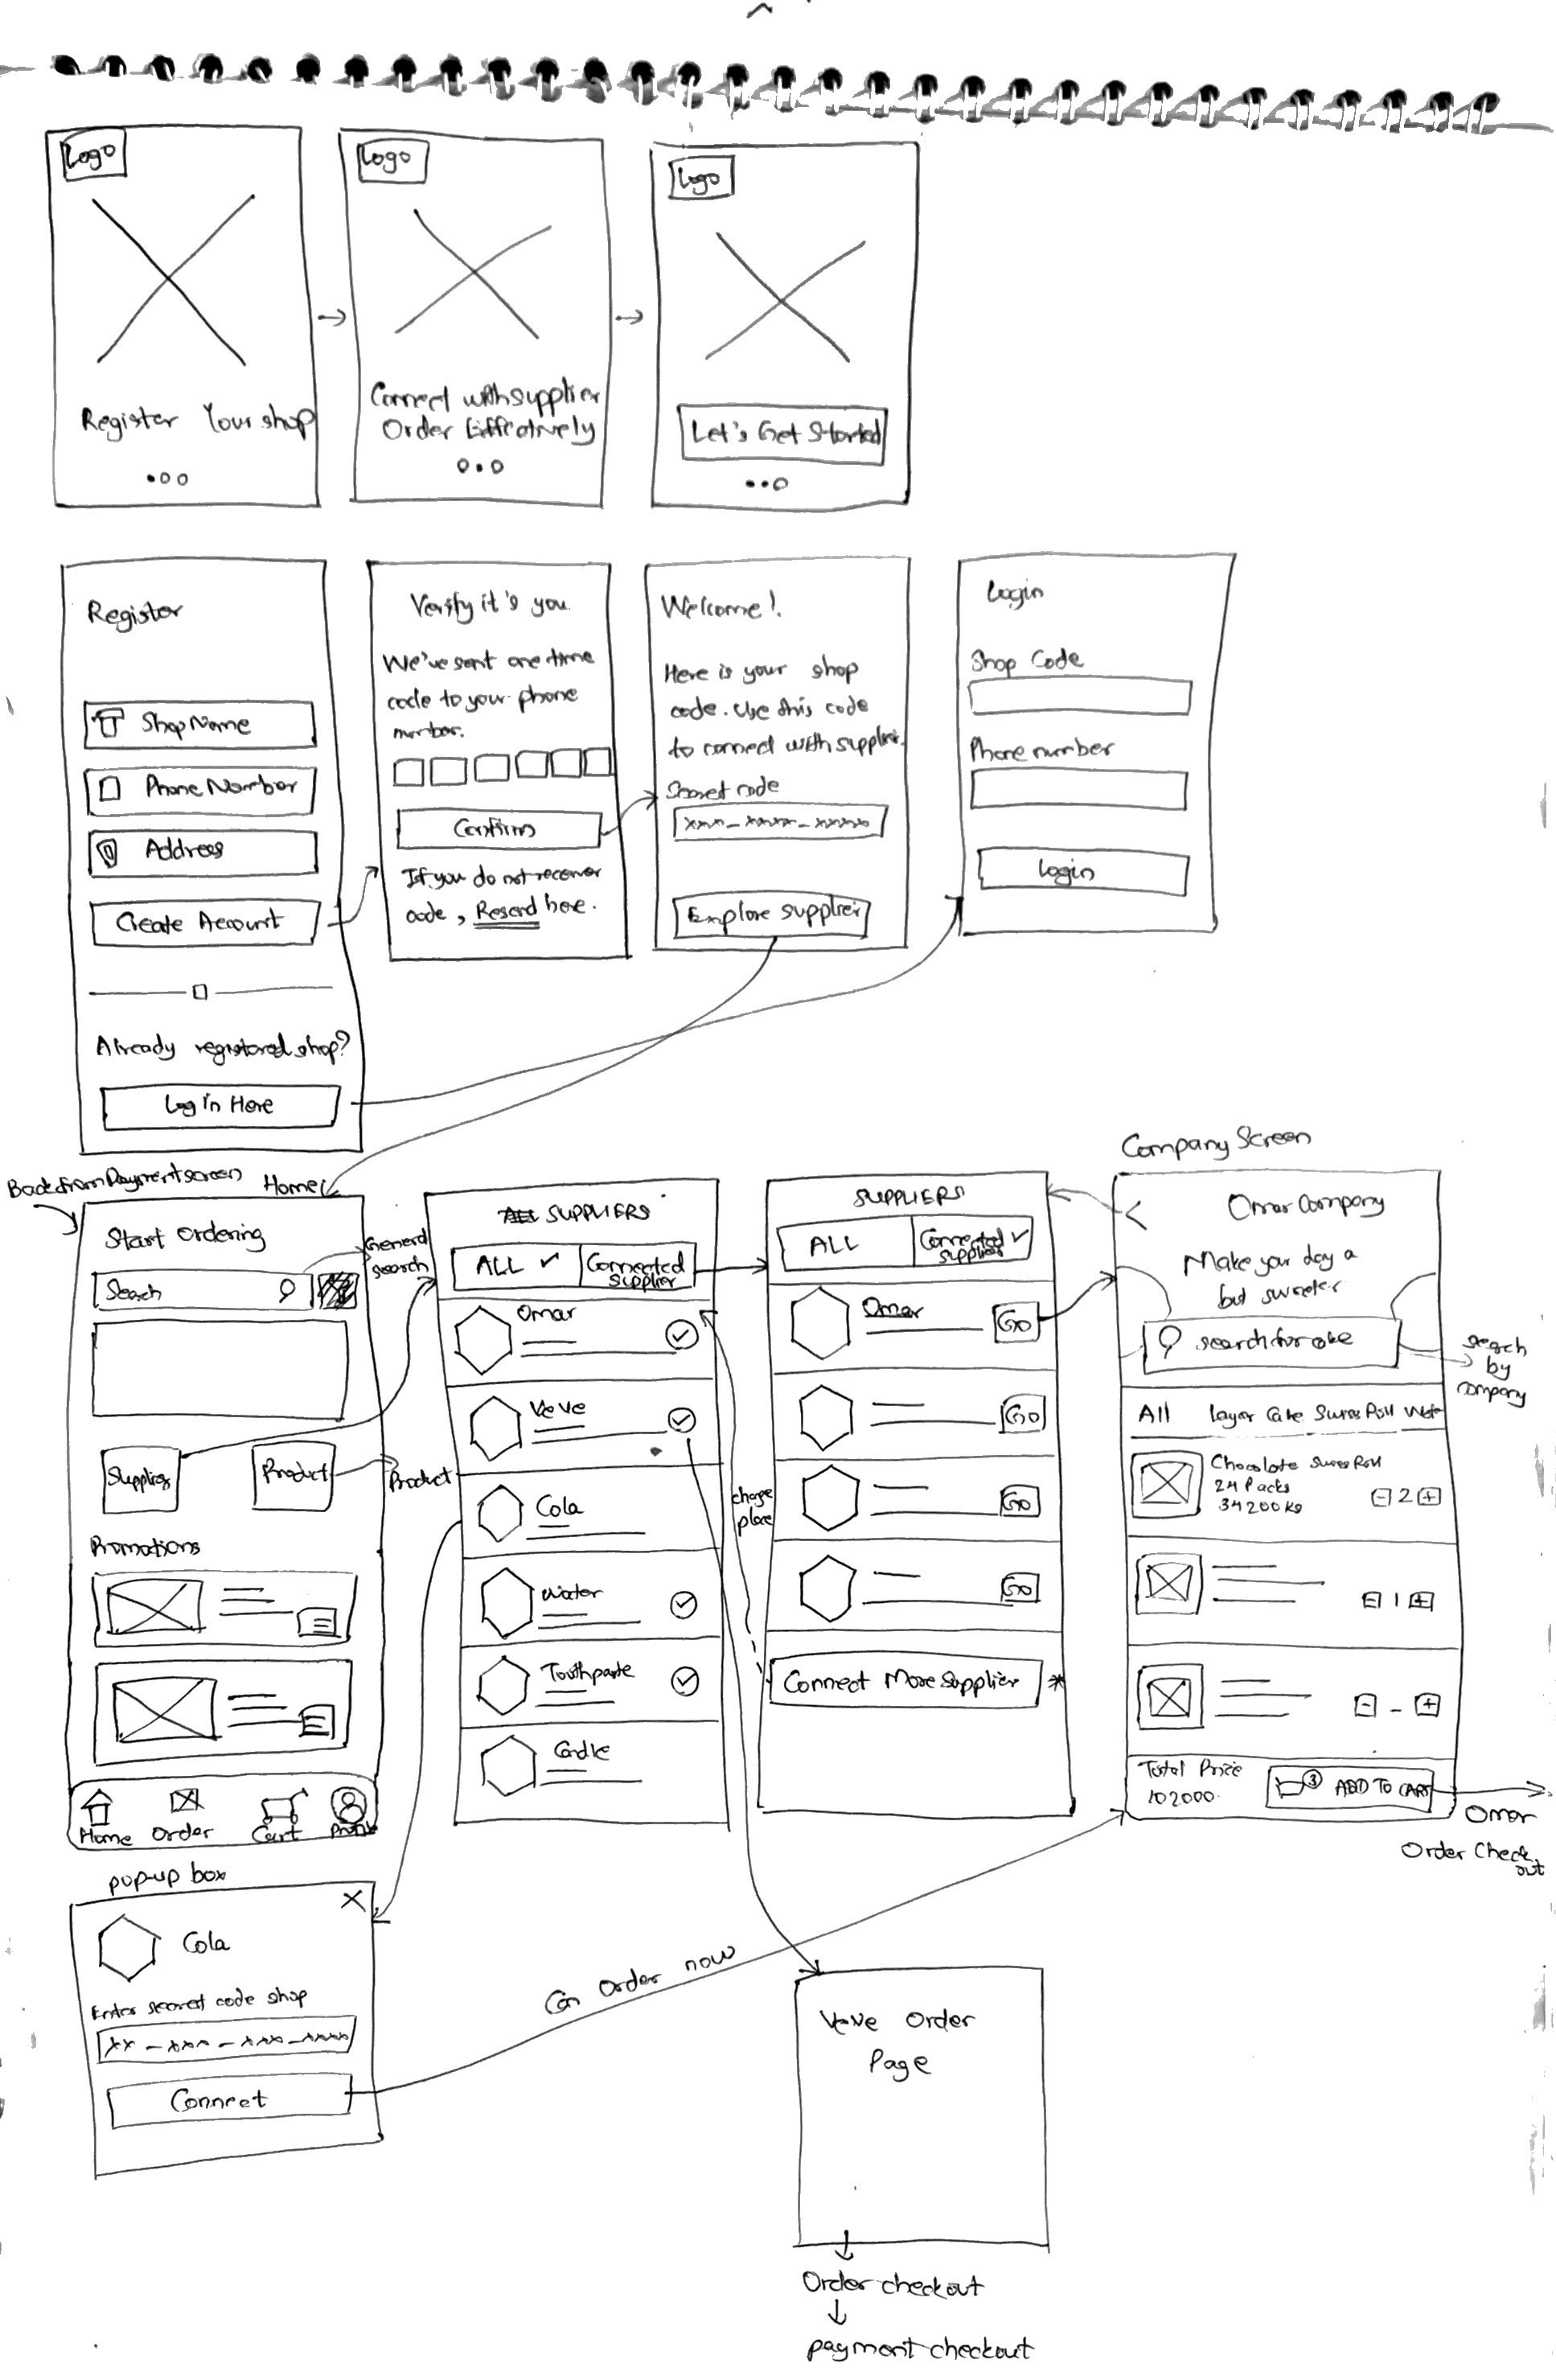 Logo
Register Your shop
Logo
Connect with supplier
Order Effectively
Logo
Let's Get Started
Register
Shop Name
Phone Number
Address
Create Account
Already registered shop?
Log in Here
Verify it's you
We've sent one time
code to your phone
number.
Confirm
If you do not receiver
code, Resend here.
Welcome!
Here is your shop
code. Use this code
to connect with supplier.
Secret code
xxx - xxxx - xxxxx
Explore supplier
Login
Shop Code
Phone number
Login
Back from Payment screen
Home
Start Ordering
Search
General
search
Supplier
Product
Product
Promotions
Home
Order
Cart
Profile
SUPPLIERS
ALL ✓
Connected
supplier
Omar
VeVe
Cola
Water
Toothpaste
Candle
change
place
SUPPLIERS
ALL
Connected ✓
supplier
Omar
Go
Go
Go
Go
Connect More supplier
Company Screen
Omar Company
Make your day a
but sweeter
search for cake
search
by
company
All Layer Cake Swiss Roll
Chocolate Swiss Roll
24 Packs
34200 Ks
- 2 +
- 1 +
- - +
Total Price
102000
3 ADD TO CART
Omar
Order Check
out
pop-up box
X
Cola
Enter secret code shop
xx - xxx - xxx - xxxx
Connect
Can order now
VeVe Order
Page
Order checkout
payment checkout